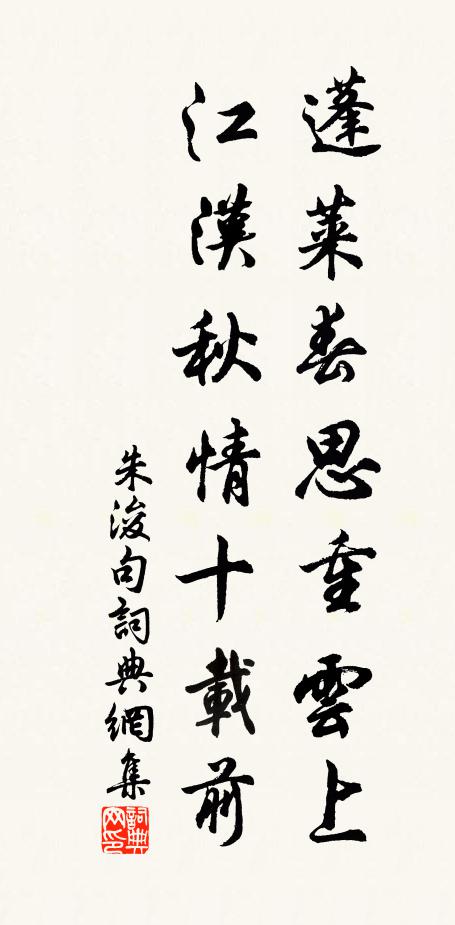 蓬萊春思重雲上
江漢秋情十載前
朱浚句詞典網集
詞典网印